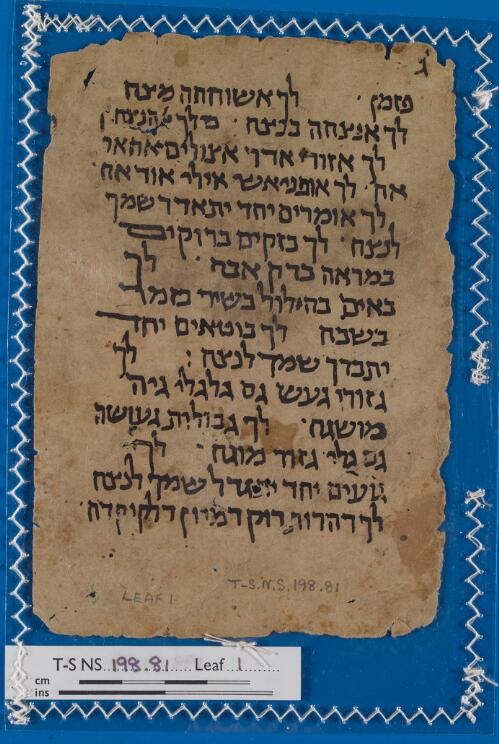 ג
פזמון · לך אשוחחה מיצח
לך אנצחה בניצח · מלך הנצח
לך אזורי אדר אצולים
אח · לך אופני אשר אילי אוד אח
לך אומרים יחד יתאדר שמך
לנצח · לך בזקים ברוקים
במראה בדק אבח · לך
באים בהילול בשיר בזמר
בשבח לך בוטאים יחד
יתברך שמך לנצח : לך
גזורי געש גס גלגלי גיה
מושגח · לך גבולות געושה
גם גלי גזור מוגח · לך
געים יחד יתגדל שמך לנצח
לך דהדור דוק
LEAF 1.
T-S.N.S. 198.81
T-S NS 198.81 Leaf 1
cm
ins